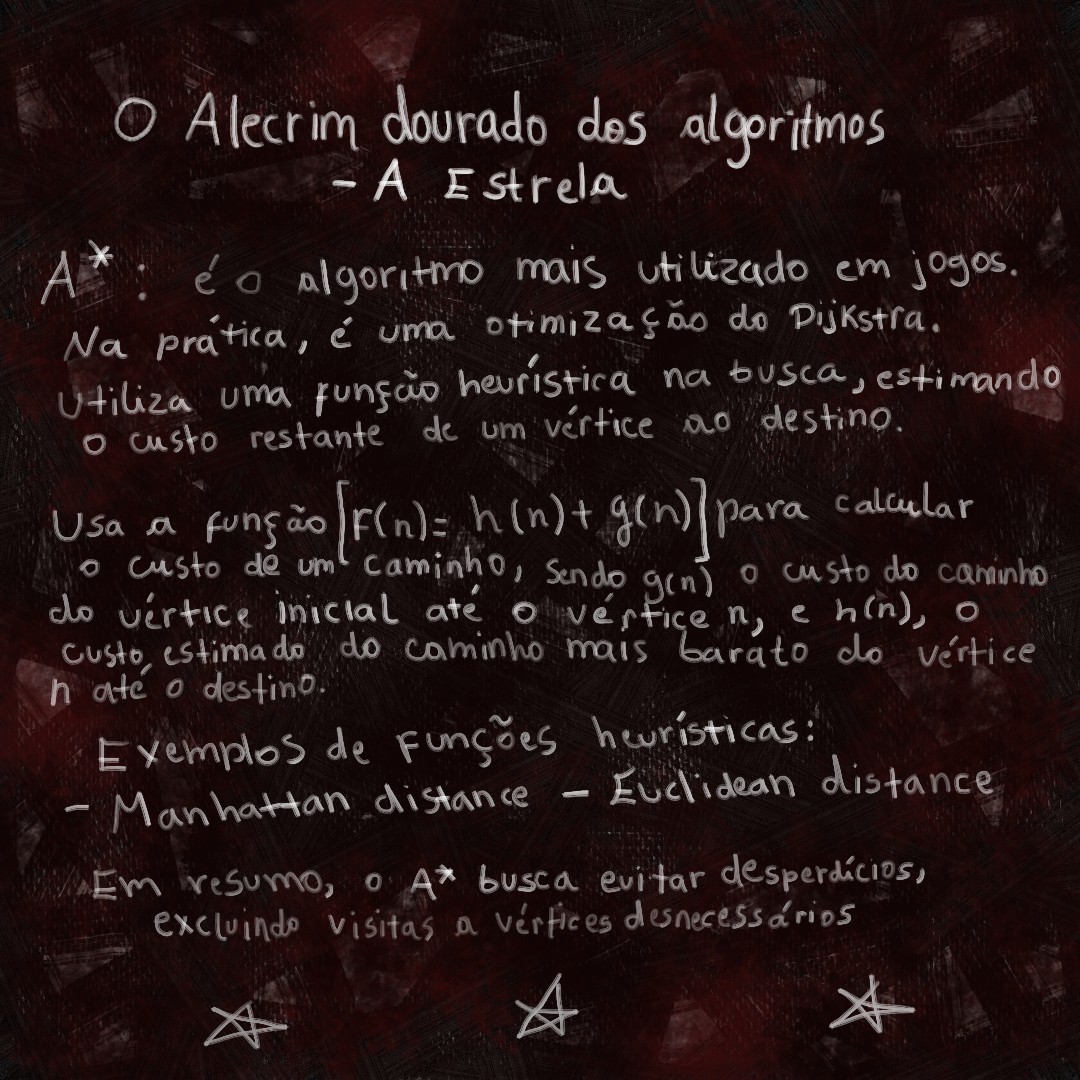 O Alecrim dourado dos algoritmos
- A Estrela
A* : é o algoritmo mais utilizado em jogos.
Na prática, é uma otimização do Dijkstra.
Utiliza uma função heurística na busca, estimando
o custo restante de um vértice ao destino.
Usa a função [F(n)= h(n)+ g(n)] para calcular
o custo de um caminho, sendo g(n) o custo do caminho
do vértice inicial até o vértice n, e h(n), o
custo estimado do caminho mais barato do vértice
n até o destino.
Exemplos de funções heurísticas:
- Manhattan distance - Euclidean distance
Em resumo, o A* busca evitar desperdícios,
excluindo visitas a vértices desnecessários